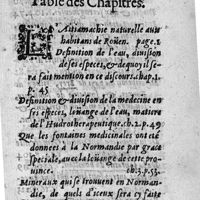 Table des Chapitres.
Astiamachie naturelle aux
habitans de Roüen. page.1
Definition de l'eau, division
de ses especes, & dequoy il se-
ra fait mention en ce discours.chap.1.
p. 45
Definition & division de la medecine en
ses especes, loüange de l'eau, matiere
de l'Hudrotherapeutique. ch.2.p.49
Que les fontaines medicinales ont été
données à la Normandie par grace
speciale, avec la loüange de cette pro-
vince. ch.3.p.53.
Mineraux qui se trouvent en Norman-
die, de quels d'iceux sera cy faite